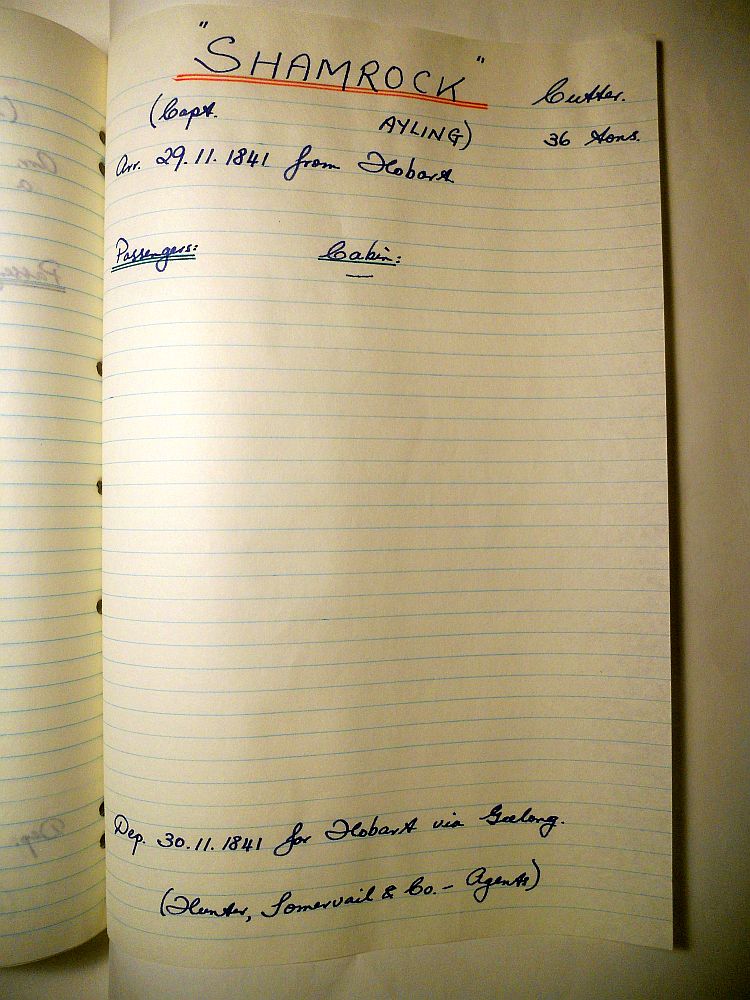 "SHAMROCK" Cutter.
(Capt. AYLING) 36 tons.
Arr. 29.11.1841 from Hobart
Passengers: Cabin:
—
Dep. 30.11.1841 for Hobart via Geelong.
(Hunter, Somervail & Co. – Agents)